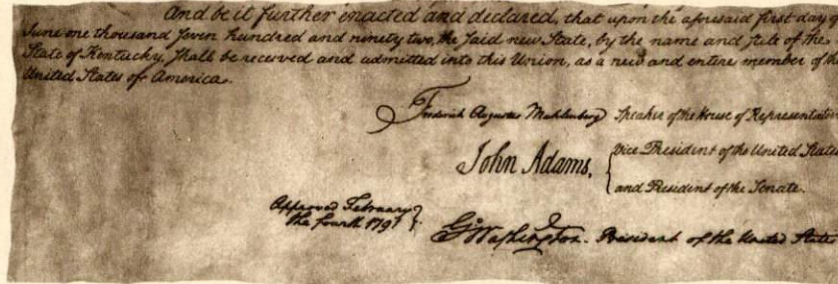 And be it further enacted and declared, that upon the aforesaid first day of
June one thousand seven hundred and ninety two, the said new State, by the name and stile of the
State of Kentucky, shall be received and admitted into this Union, as a new and entire member of the
United States of America.
Frederick Augustus Muhlenberg Speaker of the House of Representatives
John Adams, Vice President of the United States
and President of the Senate.
Approved February
the fourth 1791
Go Washington. President of the United States